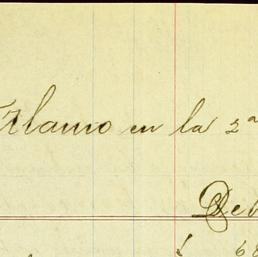 Alamo en la 2ª
Deb
68